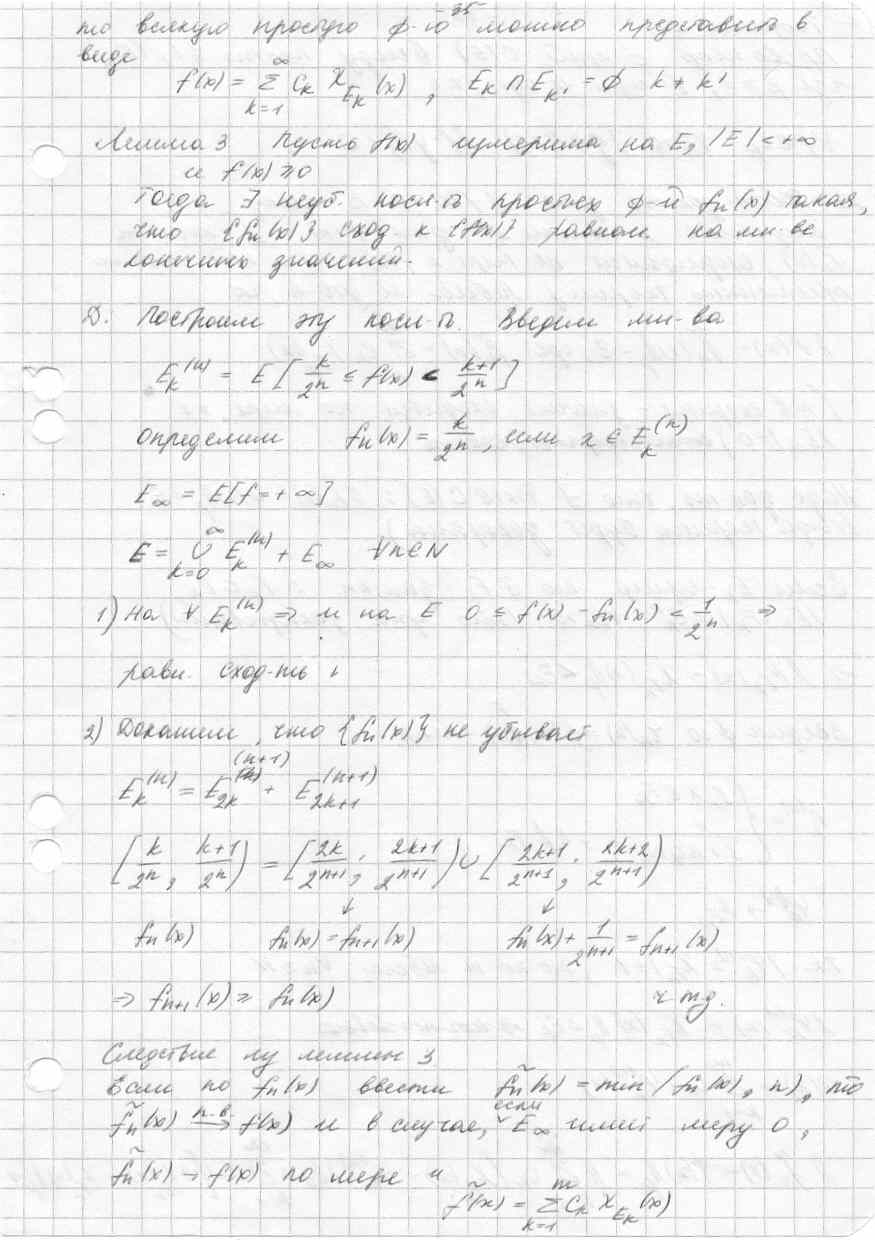 - 35 -
то всякую простую ф-ю можно представить в
виде
f(x) = ∑_{k=1}^{∞} c_k χ_{E_k}(x) , E_k ∩ E_{k'} = ∅ k ≠ k'
Лемма 3 Пусть f(x) измерима на E, |E| < +∞
и f(x) ≥ 0
Тогда ∃ неуб. посл-ть простых ф-й f_n(x) такая,
что {f_n(x)} сход. к {f(x)} равном. на мн-ве
конечных значений.
Д. Построим эту посл-ть. Введем мн-ва
E_k^{(n)} = E [ k/2^n ≤ f(x) < (k+1)/2^n ]
Определим f_n(x) = k/2^n , если x ∈ E_k^{(n)}
E_∞ = E[f = +∞]
E = ∪_{k=0}^{∞} E_k^{(n)} + E_∞ ∀n∈N
1) На ∀ E_k^{(n)} ⇒ и на E 0 ≤ f(x) - f_n(x) < 1/2^n ⇒
равн. сход-ть
2) Докажем, что {f_n(x)} не убывает
E_k^{(n)} = E_{2k}^{(n+1)} + E_{2k+1}^{(n+1)}
[ k/2^n , (k+1)/2^n ) = [ 2k/2^{n+1} ; (2k+1)/2^{n+1} ) ∪ [ (2k+1)/2^{n+1} ; (2k+2)/2^{n+1} )
↓ ↓
f_n(x) f_n(x) = f_{n+1}(x) f_n(x) + 1/2^{n+1} = f_{n+1}(x)
⇒ f_{n+1}(x) ≥ f_n(x) ч т д.
Следствие из леммы 3
Если по f_n(x) ввести f̃_n(x) = min (f_n(x), n), то
f̃_n(x) →^{п.в.} f(x) и в случае, если E_∞ имеет меру 0,
f̃_n(x) → f(x) по мере и
f̃(x) = ∑_{k=1}^{m} c_k χ_{E_k}(x)